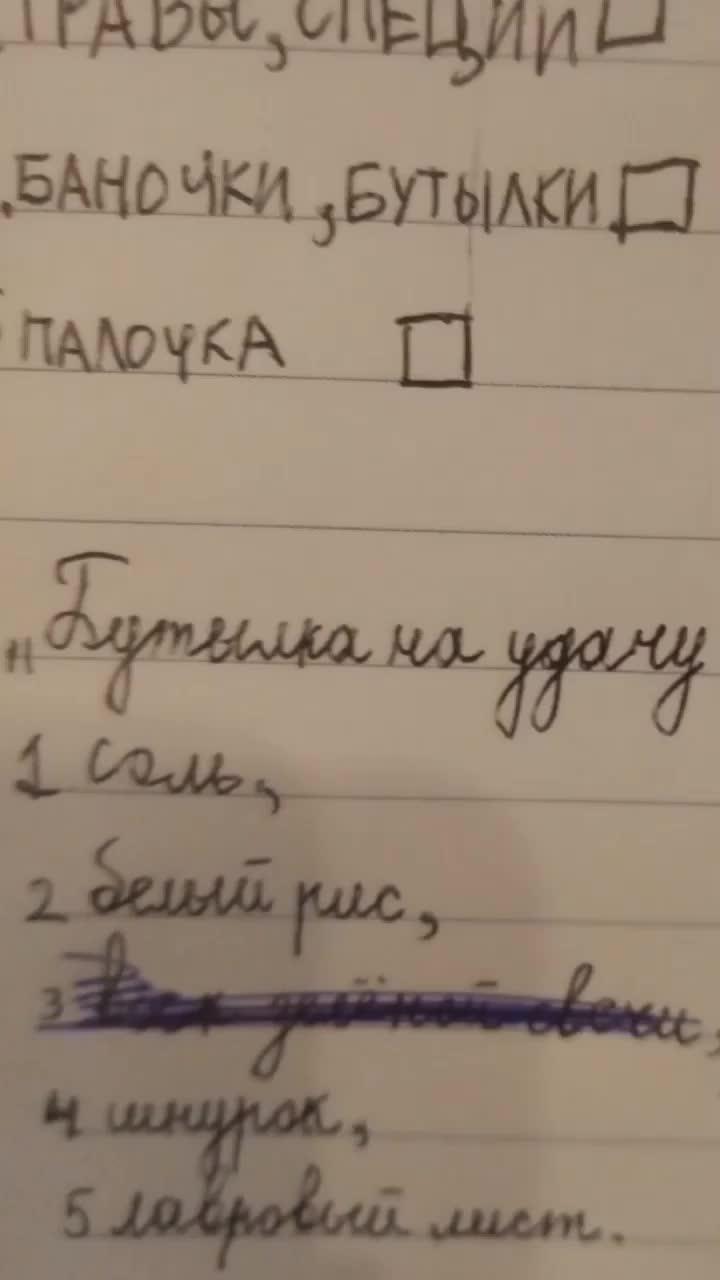 ТРАВЫ, СПЕЦИИ
БАНОЧКИ, БУТЫЛКИ
ПАЛОЧКА
"Бутылка на удачу
1 соль,
2 белый рис,
3 воск зелёной свечи,
4 шнурок,
5 лавровый лист.